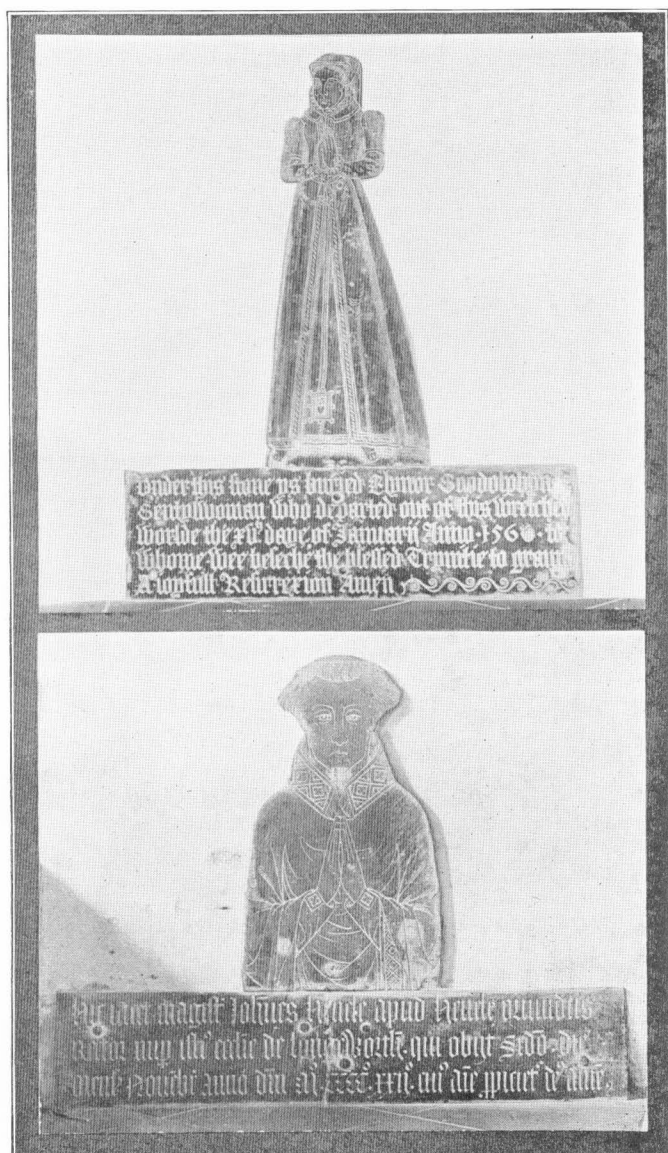 Under this stone ys buryed Elynor Goodolphyn
Gentylwoman who departed out of this wretched
worlde the xiͦ daye of Januarij Anno · 156 ·
whome wee beseche the blessed Trynitie to graunt
A Joyfull Resurrexion Amen
Hic iacet magist Johnes apud
Rector nup isti ecclie de qui obijt Scdo die
mens Novebr anno dm Mͦ CCCCCͦ xxiiͦ cuiͦ aie ppiciet deͦ amē